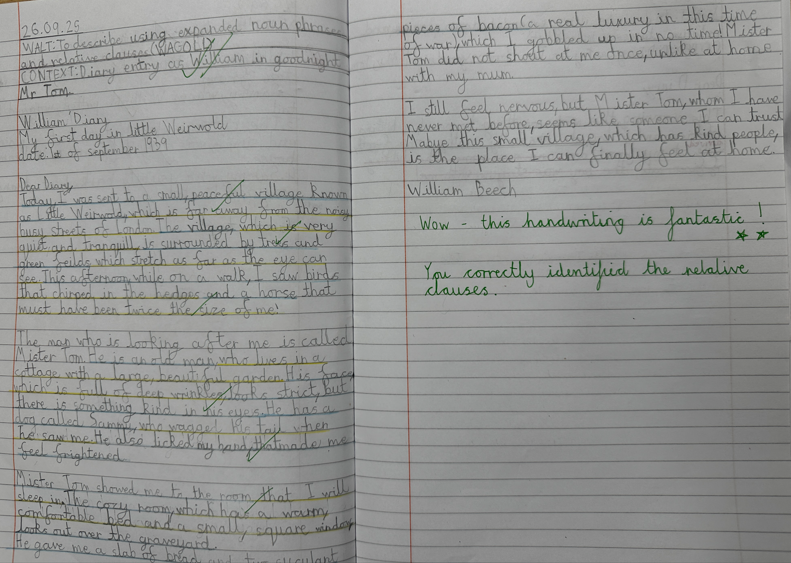 26.09.25
WALT: To describe using expanded noun phrases
and relative clauses (WAGOLL)
CONTEXT: Diary entry as William in goodnight
Mr Tom.
William Diary
My first day in little Weirwold
date: 1st of september 1939
Dear Diary
Today, I was sent to a small, peaceful village known
as Little Weirwold, which is far away from the noisy
busy streets of London. The village, which is very
quiet and tranquill, is surrounded by trees and
green feilds which stretch as far as the eye can
see. This afternoon, while on a walk, I saw birds
that chirped in the hedges and a horse that
must have been twice the size of me!
The man who is looking after me is called
Mister Tom. He is an old man, who lives in a
cottage with a large, beautiful garden. His face,
which is full of deep wrinkles, looks strict, but
there is something kind in his eyes. He has a
dog called Sammy, who wagged his tail when
he saw me. He also licked my hand, that made me
feel frightened
Mister Tom showed me to the room that I will
sleep in. The cozy room, which has a warm,
comfortable bed and a small, square window
looks out over the graveyard
He gave me a slab of bread and two succulent
pieces of bacon (a real luxury in this time
of war, which I gobbled up in no time! Mister
Tom did not shout at me once, unlike at home
with my mum.
I still feel nervous, but Mister Tom, whom I have
never met before, seems like someone I can trust
Mabye this small village, which has kind people,
is the place I can finally feel at home.
William Beech
Wow - this handwriting is fantastic!
You correctly identified the relative
clauses.